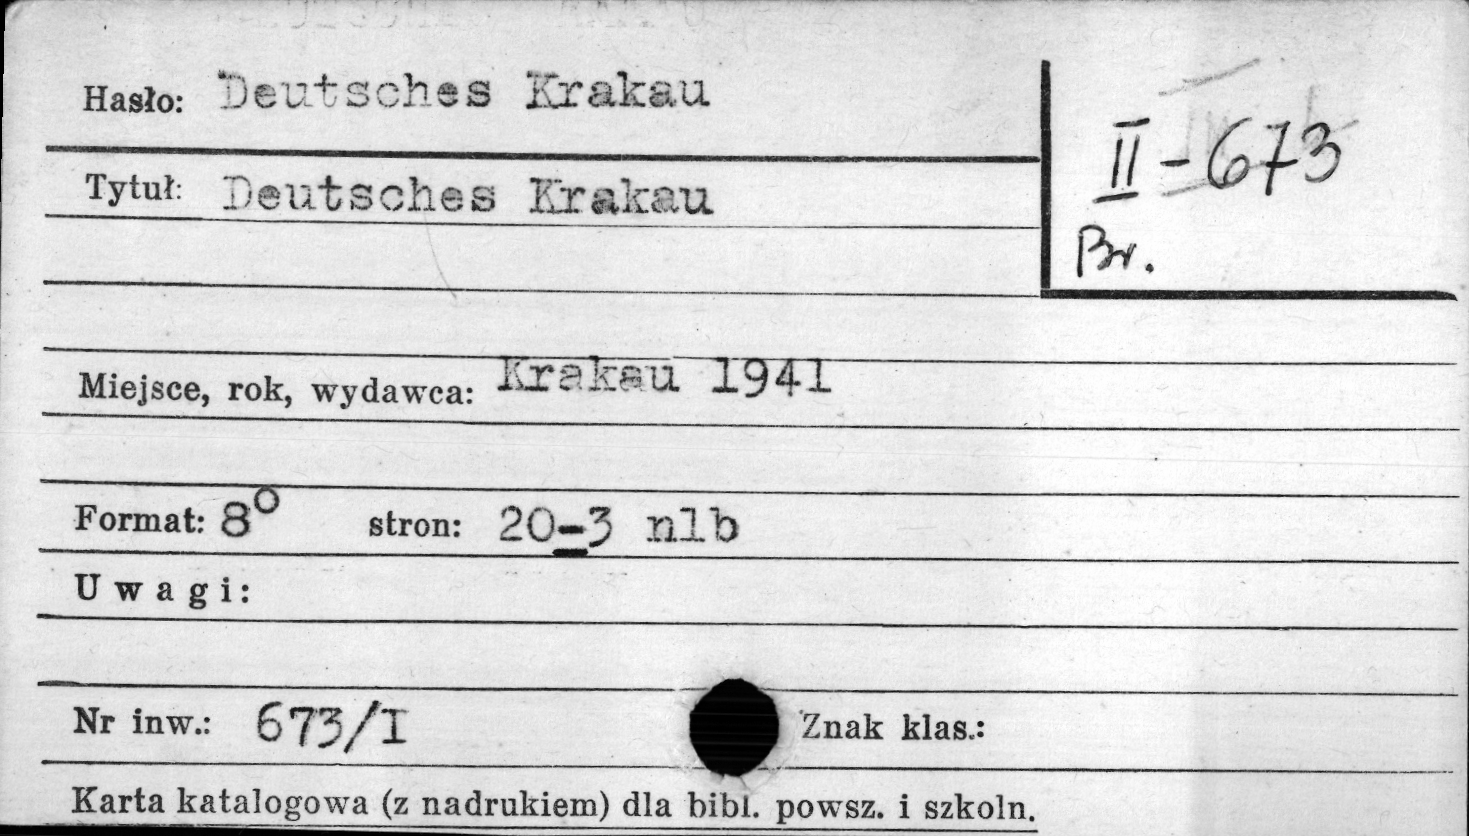 Hasło: Deutsches Krakau
II-673
Tytuł: Deutsches Krakau
Br.
Miejsce, rok, wydawca: Krakau 1941
Format: 8° stron: 20-3 nlb
Uwagi:
Nr inw.: 673/I Znak klas.:
Karta katalogowa (z nadrukiem) dla bibl. powsz. i szkoln.